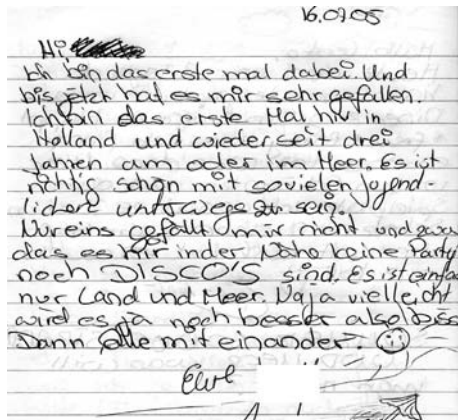 16.07.05
Hi,
Ich bin das erste mal dabei. Und
bis jetzt hat es mir sehr gefallen.
Ich bin das erste Mal hir in
Holland und wieder seit drei
Jahren am oder im Meer. Es ist
richtig schön mit sovielen Jugend-
lichen unterwegs zu sein.
Nur eins gefällt mir nicht und zwar
das es hir in der Nähe keine Party
noch DISCO'S sind. Es ist einfach
nur Land und Meer. Naja vielleicht
wird es ja noch besser also biss
Dann alle mit einander.
Eure